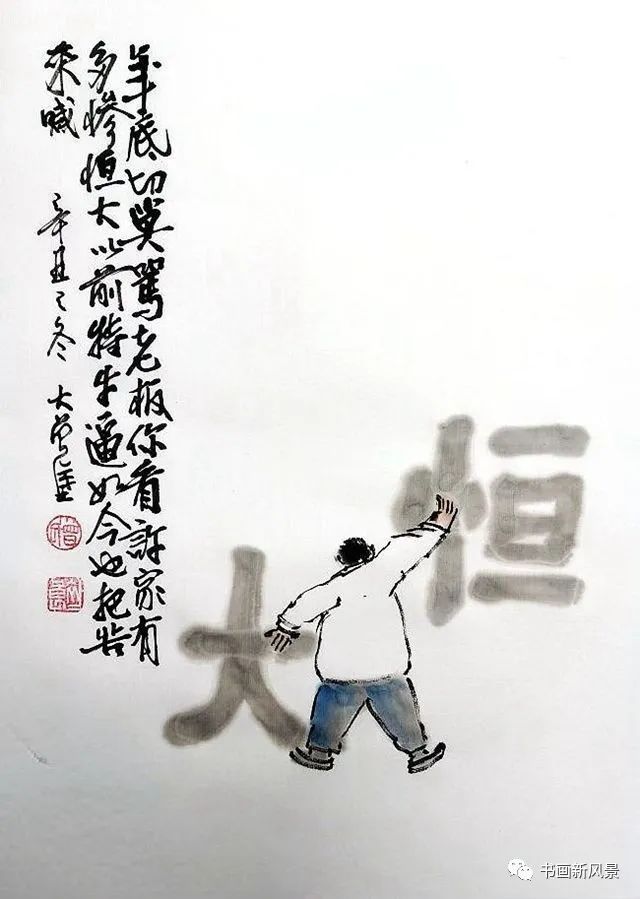 年底切莫骂老板你看许家有
多惨恒大以前特牛逼如今也把苦
来喊
辛丑之冬
恒
大
书画新风景